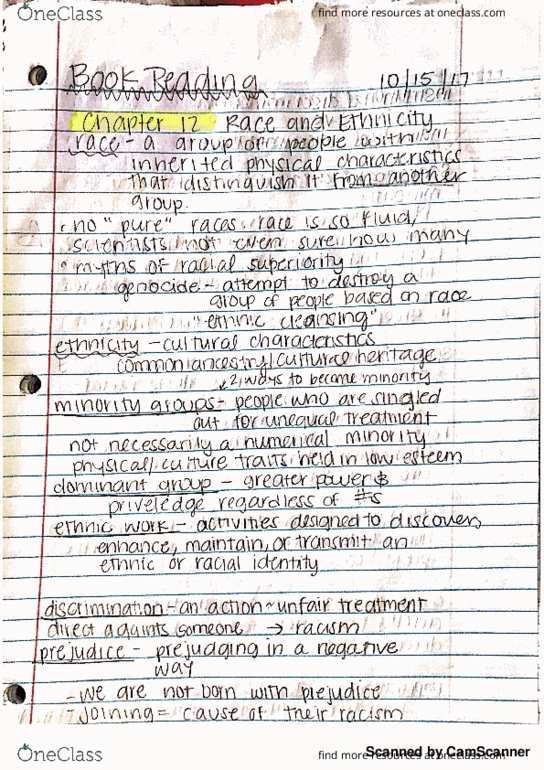 OneClass
find more resources at oneclass.com
Book Reading 10/15/17
Chapter 12 Race and Ethnicity
race - a group of people with
inherited physical characteristics
that distinguish it from another
group.
• no "pure" races, race is so fluid,
scientists not even sure how many
• myths of racial superiority
genocide - attempt to destroy a
group of people based on race
"ethnic cleansing"
ethnicity - cultural characteristics
common ancestry/cultural heritage
↙ 2 ways to become minority
minority groups - people who are singled
out for unequal treatment
not necessarily a numerical minority
physical/culture traits held in low esteem
dominant group - greater power &
priveledge regardless of #s
ethnic work - activities designed to discover,
enhance, maintain, or transmit an
ethnic or racial identity
discrimination - an action ~ unfair treatment
direct againts someone → racism
prejudice - prejudging in a negative
way
- we are not born with prejudice
- Joining = cause of their racism
OneClass
find more resources at oneclass.com
Scanned by CamScanner